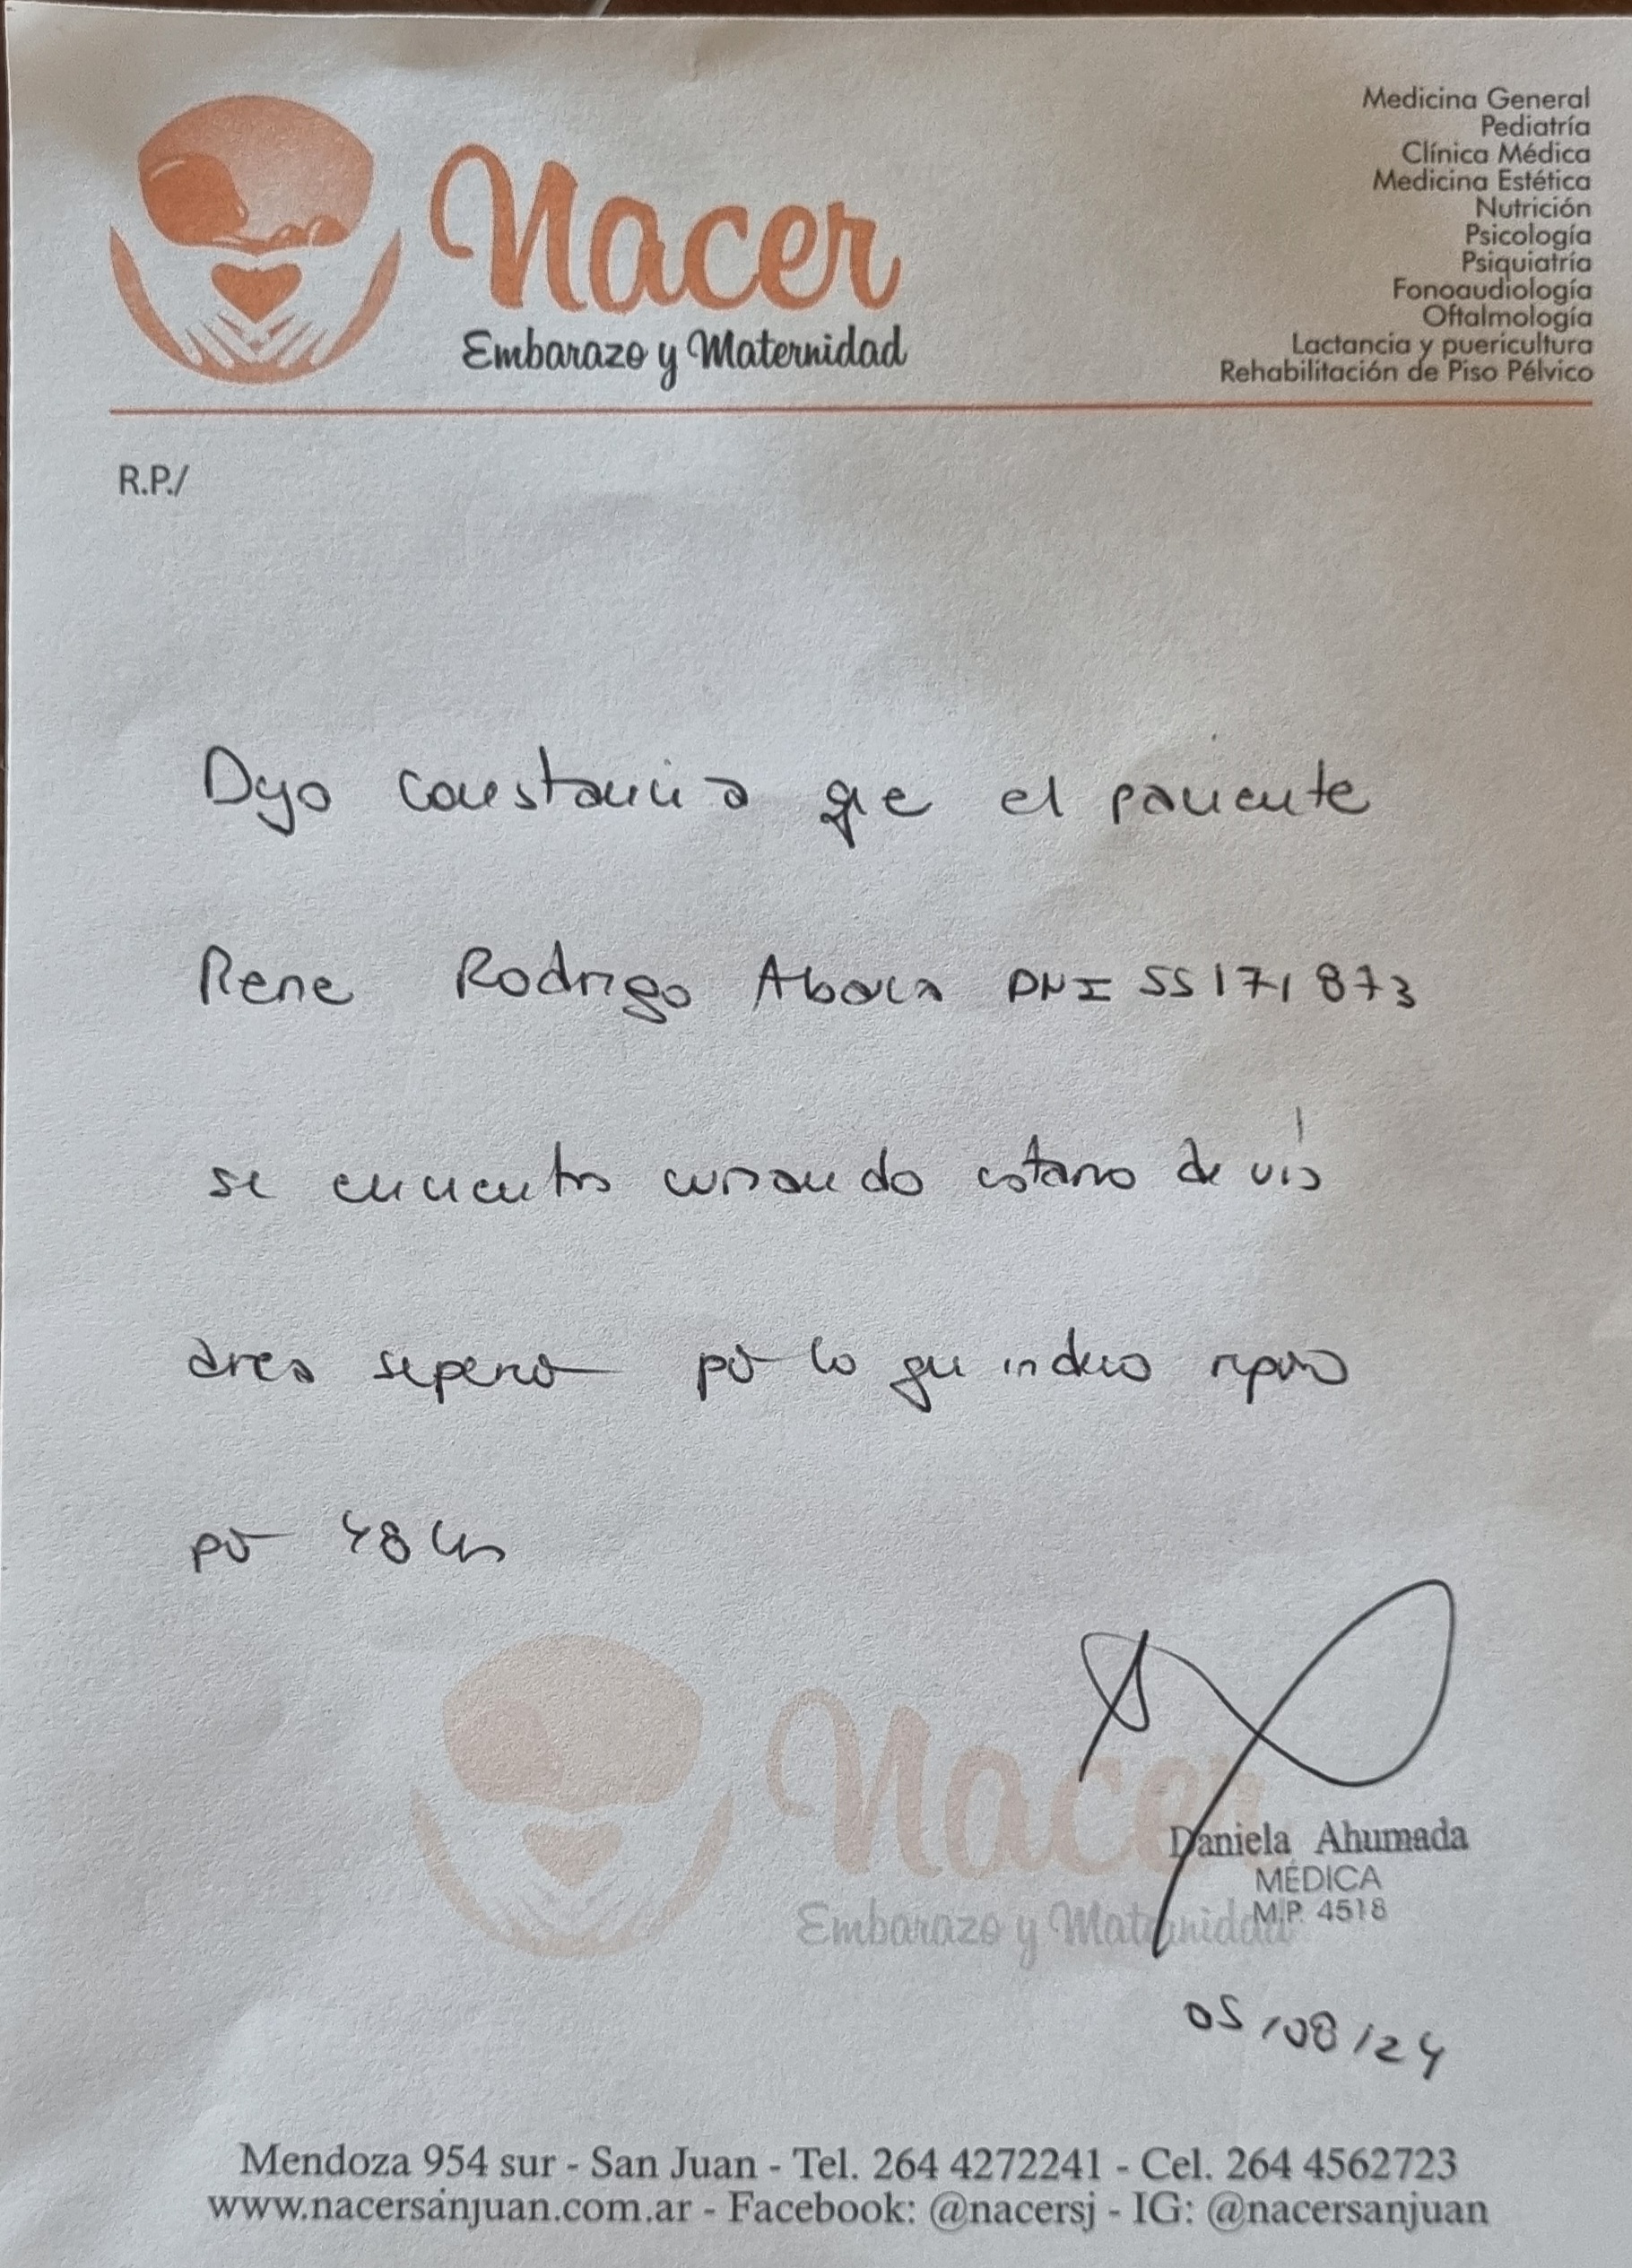 Nacer
Embarazo y Maternidad
Medicina General
Pediatría
Clínica Médica
Medicina Estética
Nutrición
Psicología
Psiquiatría
Fonoaudiología
Oftalmología
Lactancia y puericultura
Rehabilitación de Piso Pélvico
R.P./
Dejo constancia que el paciente
Rene Rodrigo DNI 55171873
se encuentra cursando catarro de vía
área superior por lo que indico reposo
por 48 hs
Nacer
Embarazo y Maternidad
Daniela Ahumada
MÉDICA
M.P. 4518
05/08/24
Mendoza 954 sur - San Juan - Tel. 264 4272241 - Cel. 264 4562723
www.nacersanjuan.com.ar - Facebook: @nacersj - IG: @nacersanjuan